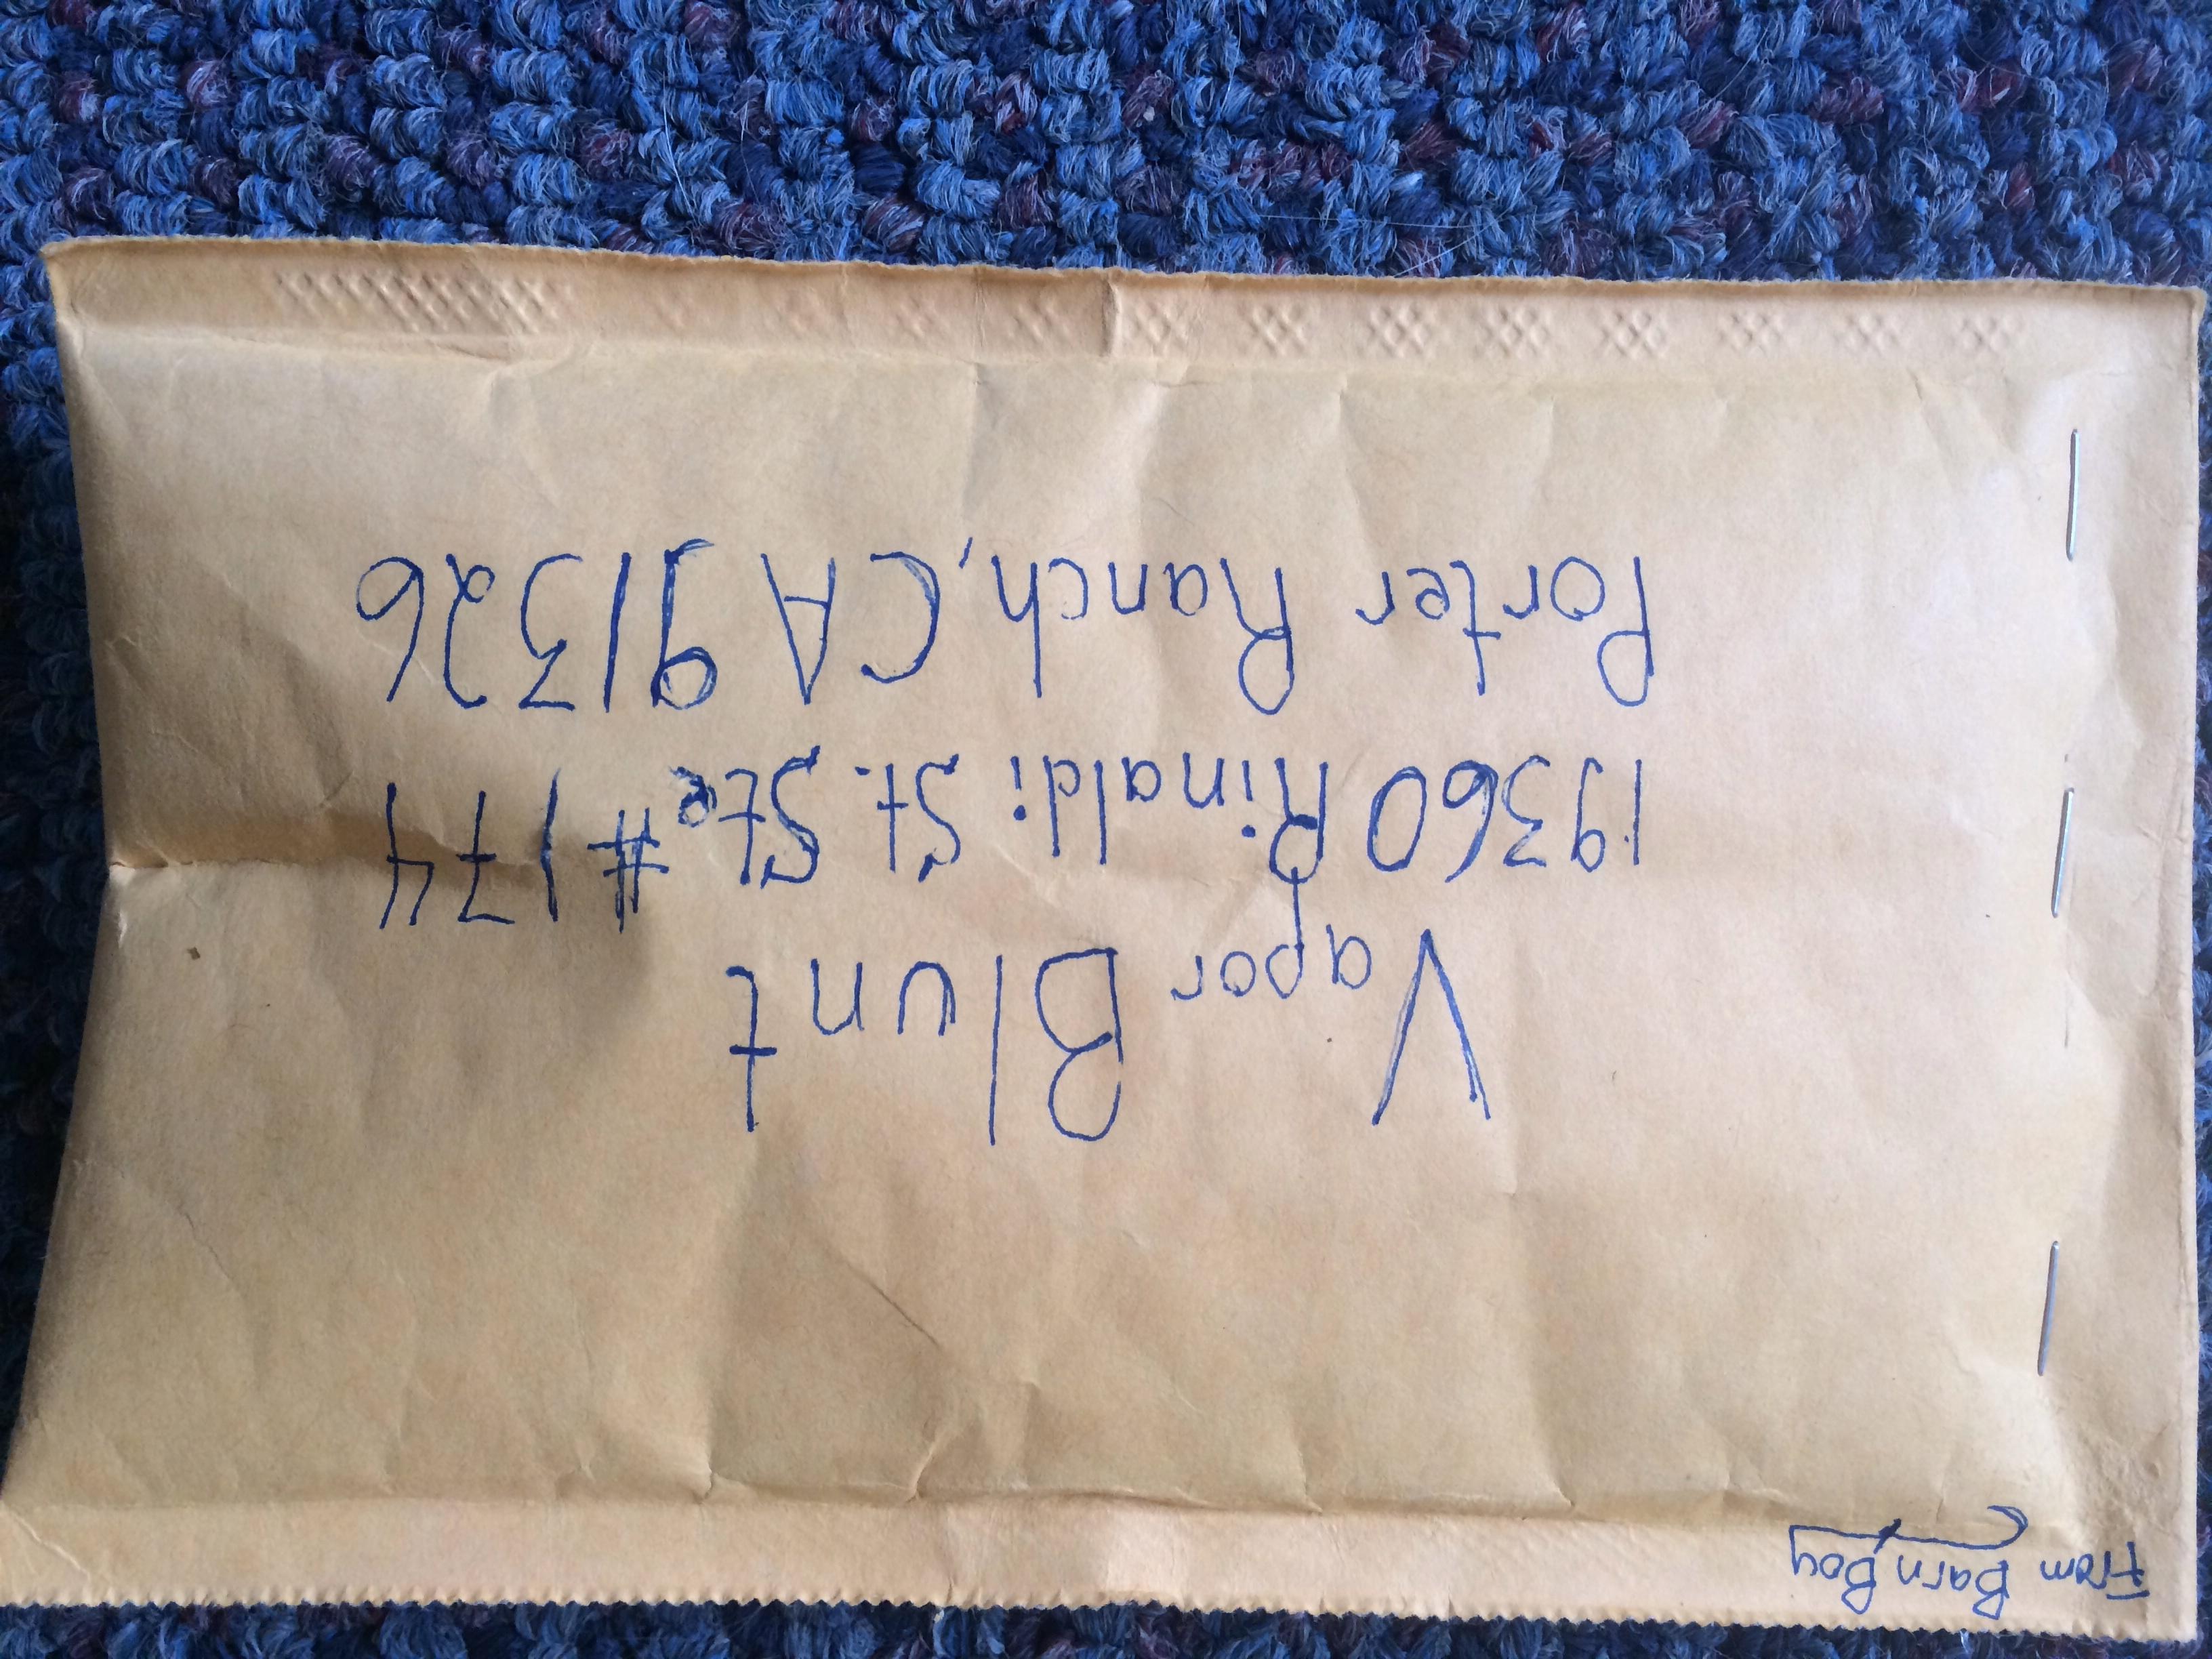 From Barn Boy
Vapor Blunt
19360 Rinaldi St. Ste #174
Porter Ranch, CA 91326